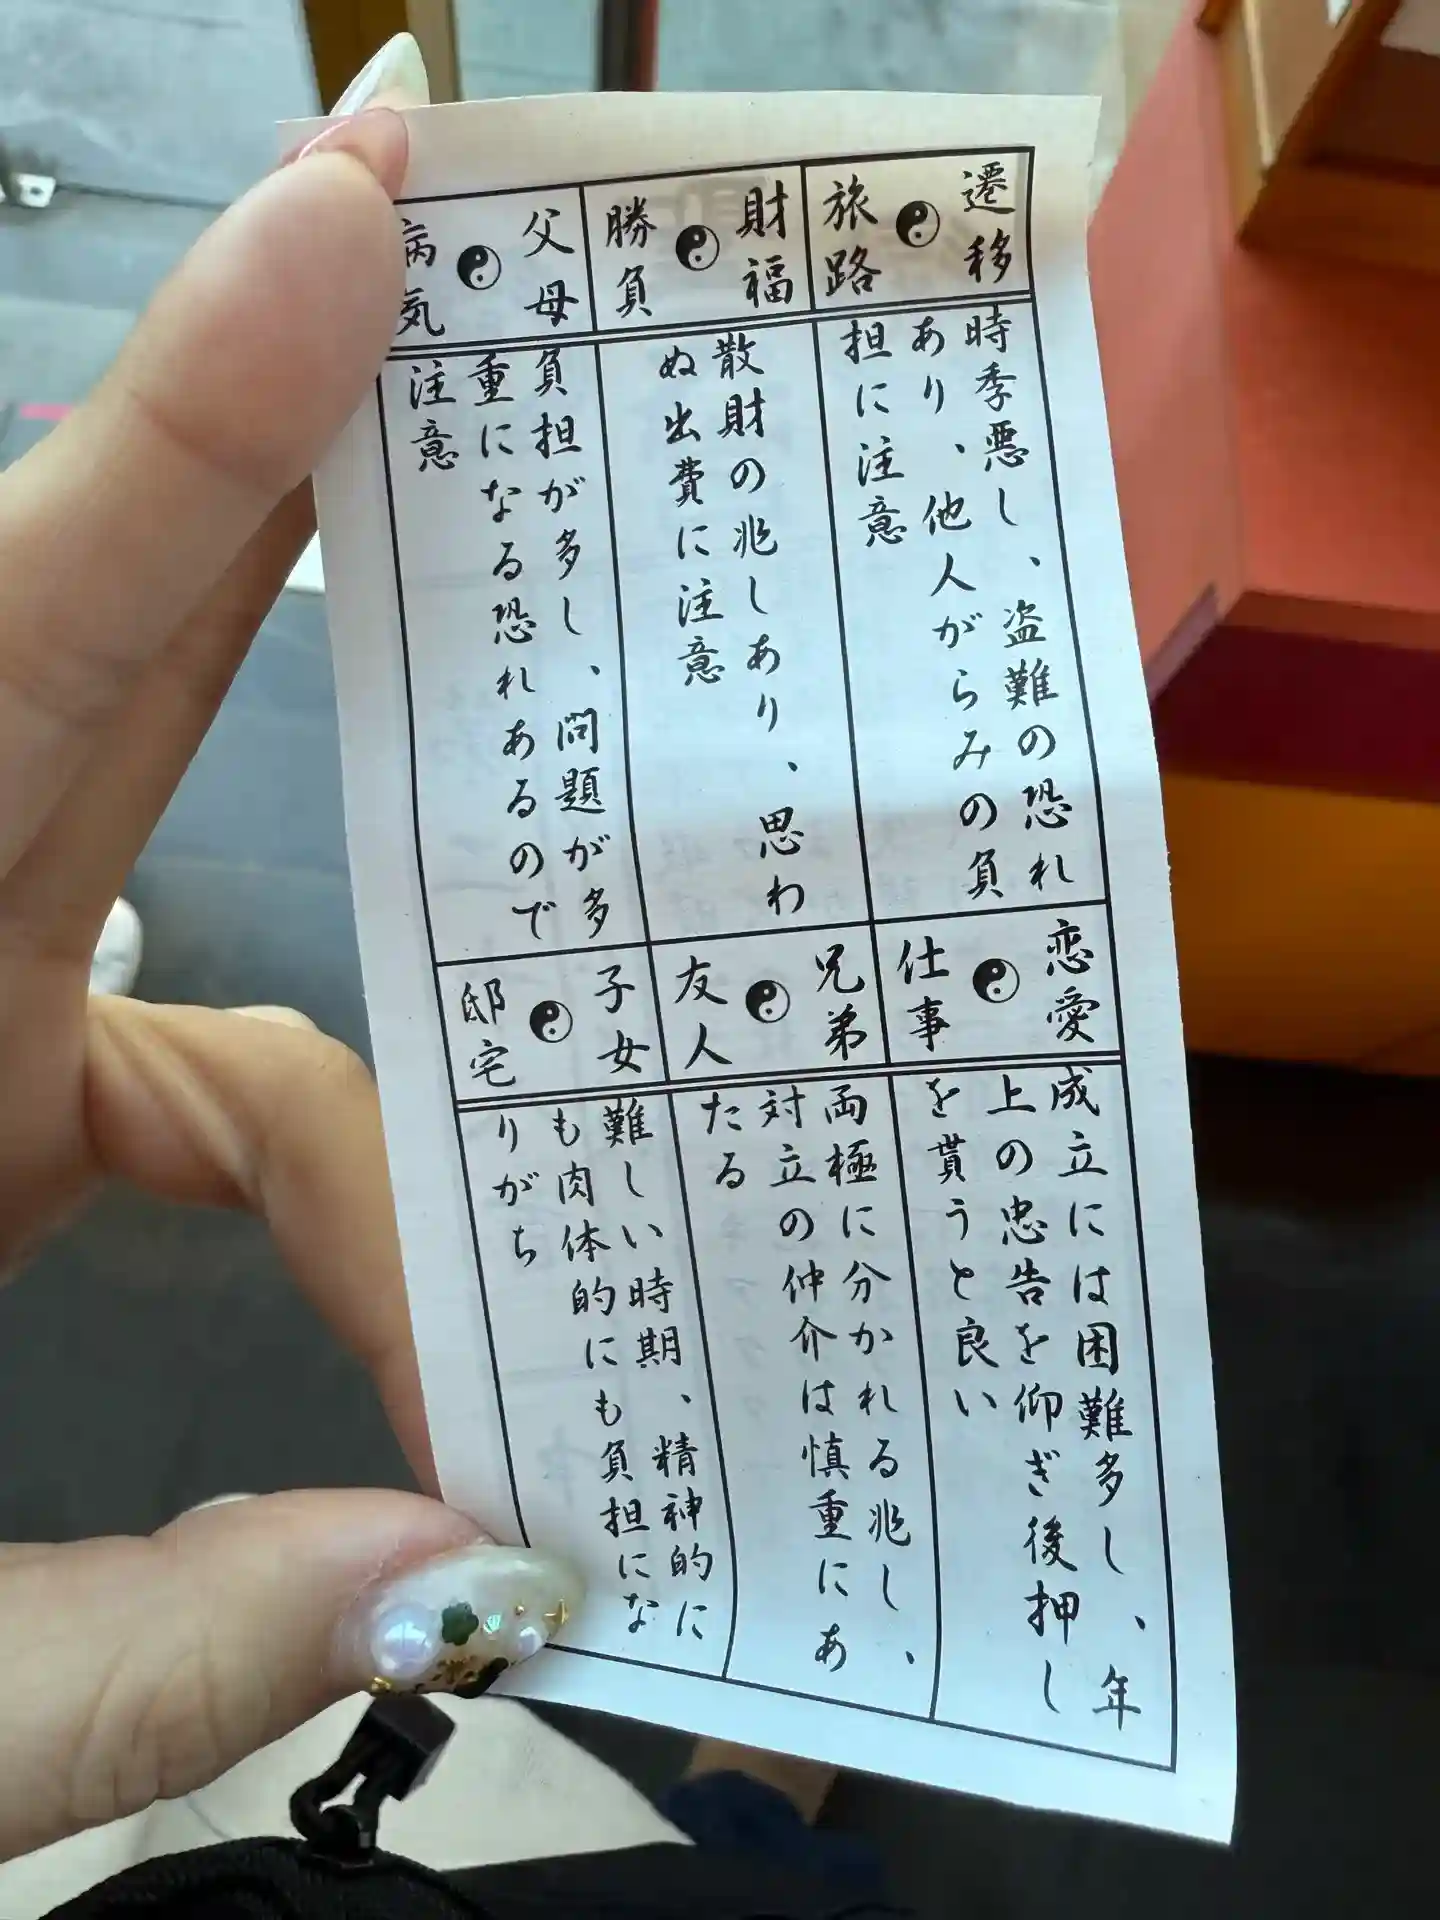 遷移
旅路
時季悪し、盗難の恐れ
あり、他人がらみの負
担に注意
財福
勝負
散財の兆しあり、思わ
ぬ出費に注意
父母
病気
負担が多し、問題が多
重になる恐れあるので
注意
恋愛
仕事
成立には困難多し、年
上の忠告を仰ぎ後押し
を貰うと良い
兄弟
友人
両極に分かれる兆し、
対立の仲介は慎重にあ
たる
子女
邸宅
難しい時期、精神的に
も肉体的にも負担にな
りがち